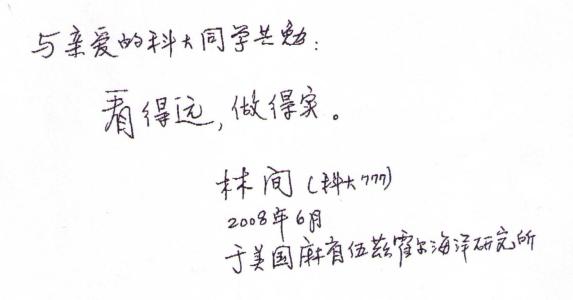 与亲爱的科大同学共勉：
看得远，做得实。
林间（科大777）
2008年6月
于美国麻省伍兹霍尔海洋研究所